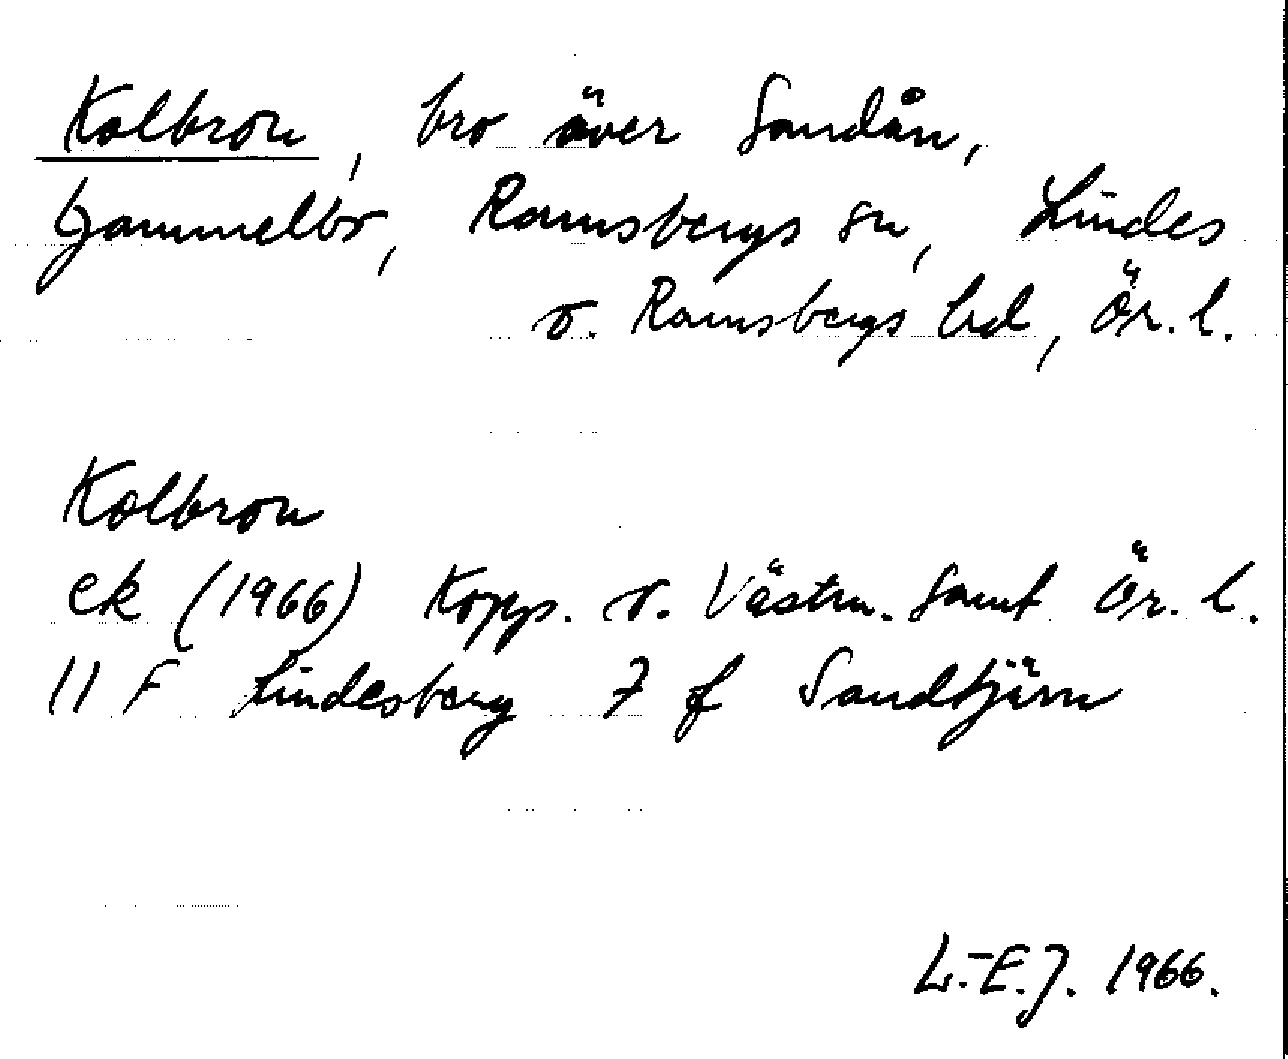 Kolbron, bro över Sandån,
Gammelbo, Ramsbergs sn, Lindes
o. Ramsbergs bd, Ör. l.
Kolbron
ek (1966) Kopp. o. Västm. samt Ör. l.
11 F Lindesberg 7 f Sandtjärn
L.-E.J. 1966.